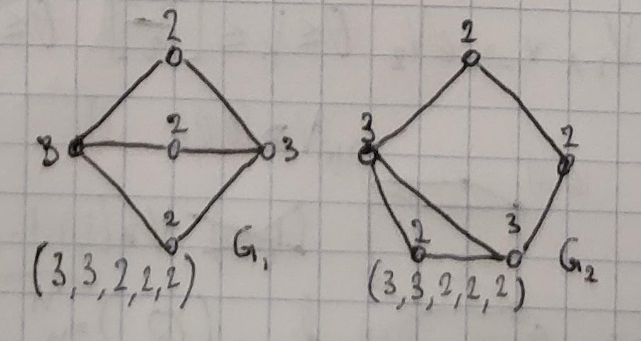 2
2
3
2
3
2
G₁
(3,3,2,2,2)
2
3
2
2
3
G₂
(3,3,2,2,2)